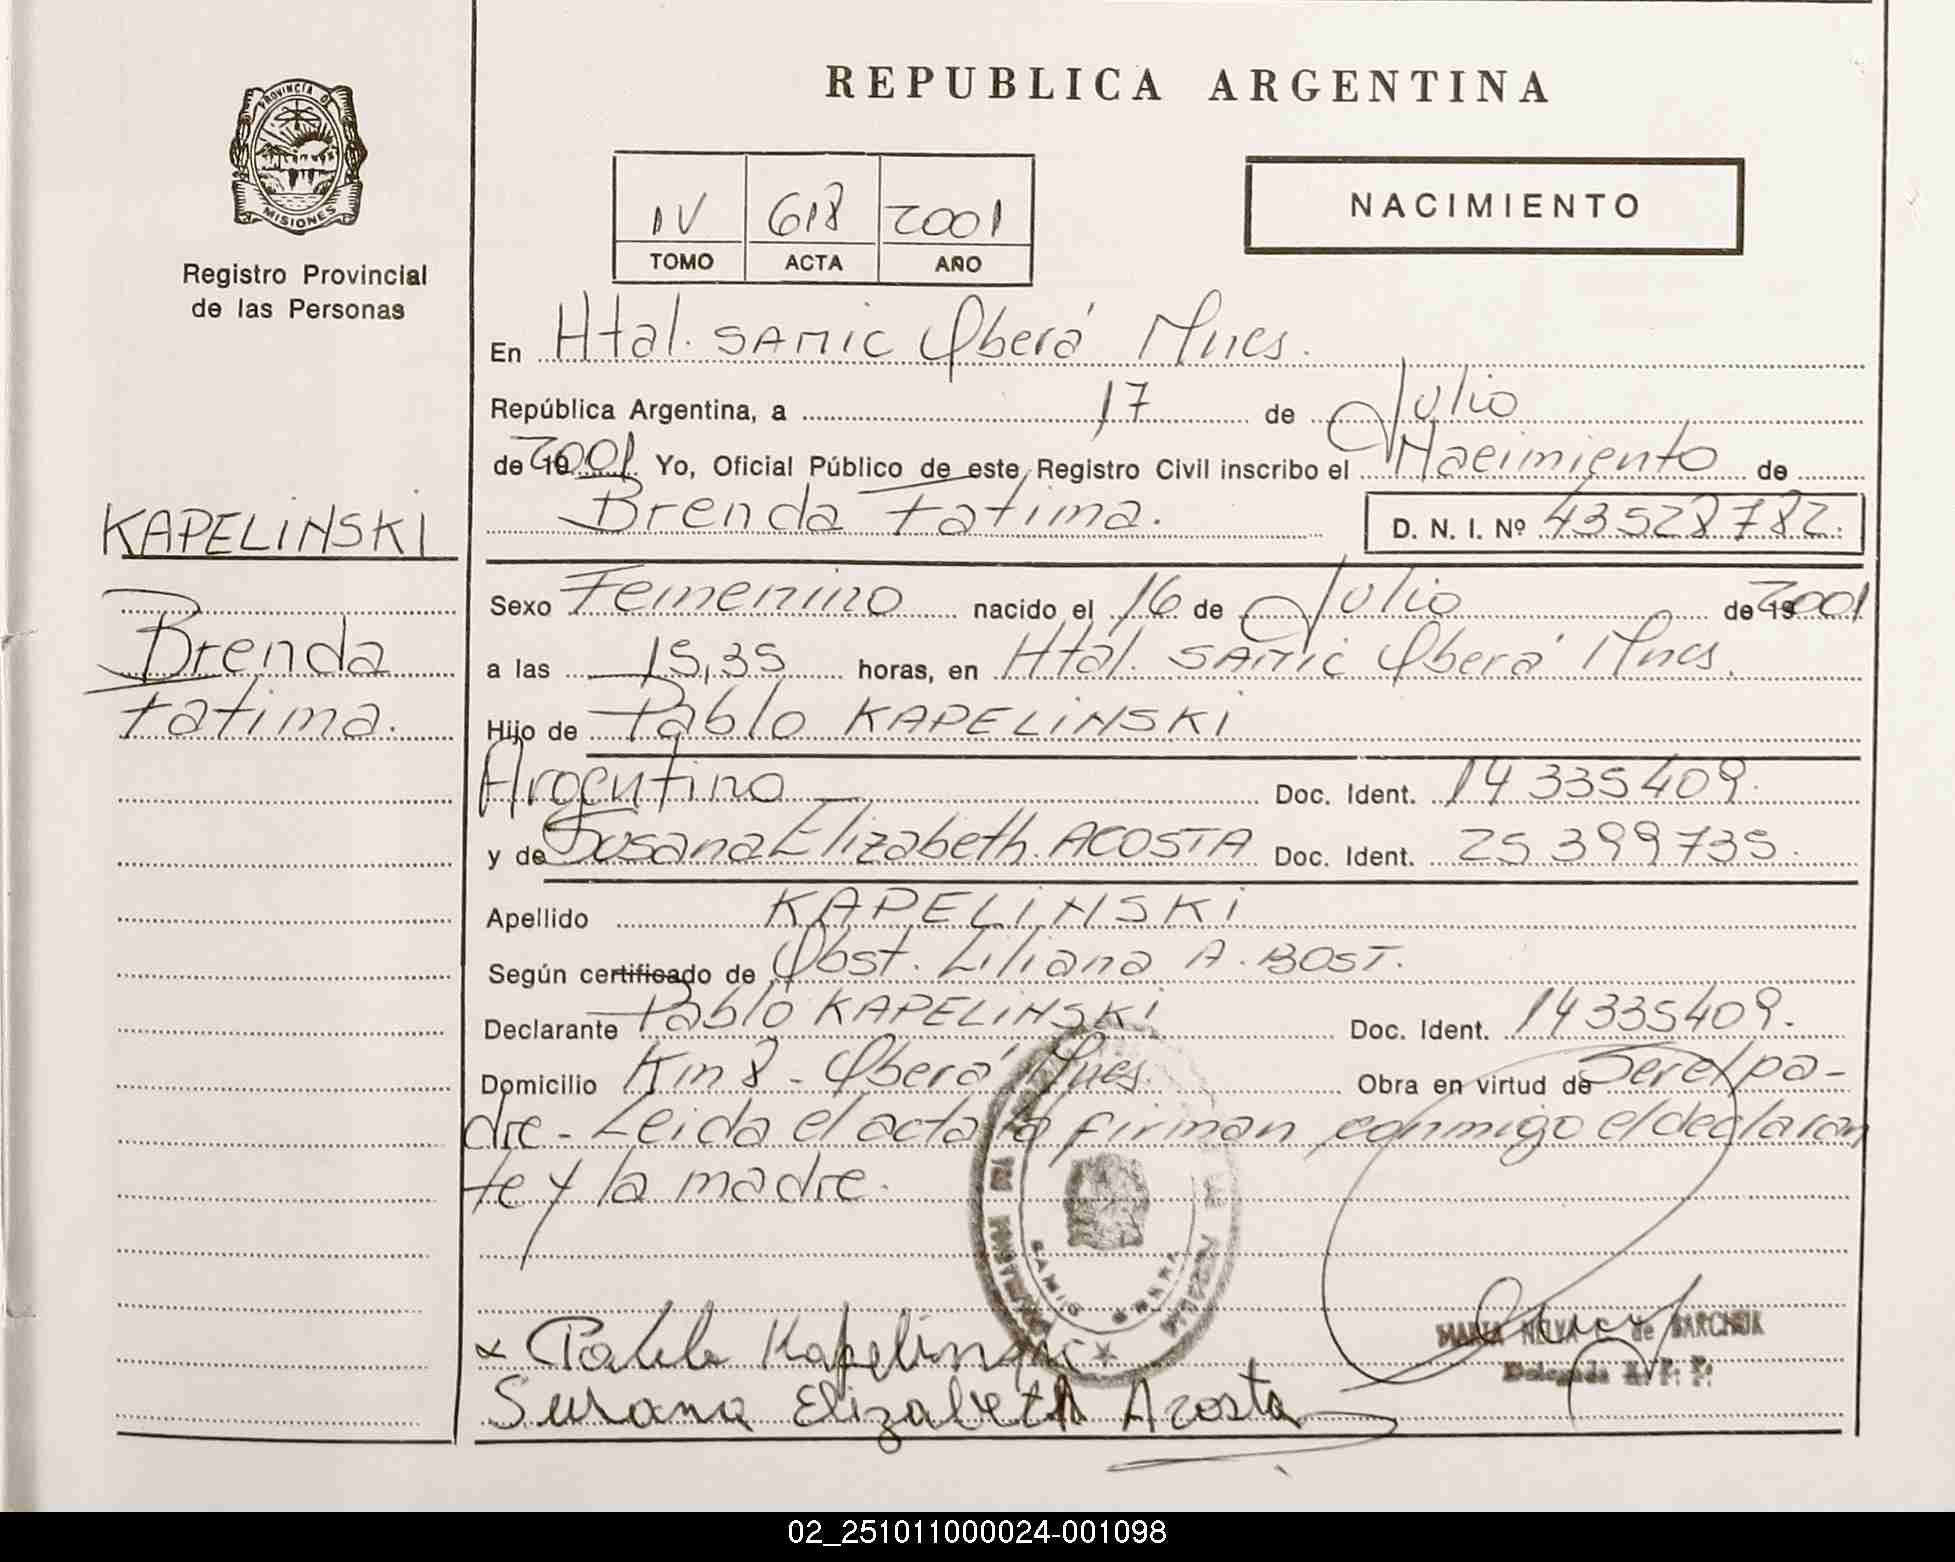 PROVINCIA DE
MISIONES
Registro Provincial
de las Personas
KAPELINSKI
Brenda
Fatima.
REPUBLICA ARGENTINA
IV 618 2001
TOMO ACTA AÑO
NACIMIENTO
En Htal. SAMIC Oberá Mnes.
República Argentina, a 17 de Julio
de 19 2001 Yo, Oficial Público de este Registro Civil inscribo el Nacimiento de
Brenda Fatima. D. N. I. Nº 43528782.
Sexo Femenino nacido el 16 de Julio de 19 2001
a las 15,35 horas, en Htal. SAMIC Oberá Mnes.
Hijo de Pablo KAPELINSKI
Argentino Doc. Ident. 14 335 409.
y de Susana Elizabeth ACOSTA Doc. Ident. 25 399 735.
Apellido KAPELINSKI
Según certificado de Obst. Liliana A. BOST.
Declarante Pablo KAPELINSKI Doc. Ident. 14 335409.
Domicilio Km 8 - Oberá Mnes. Obra en virtud de Ser el pa-
dre - Leida el acta la firman conmigo el declaran
te y la madre.
SAMIC OBERA
x Pablo Kapelinski
MARIA NELVA de BARCHUK
Delegada R. P. P.
Susana Elizabeth Acosta
02_251011000024-001098